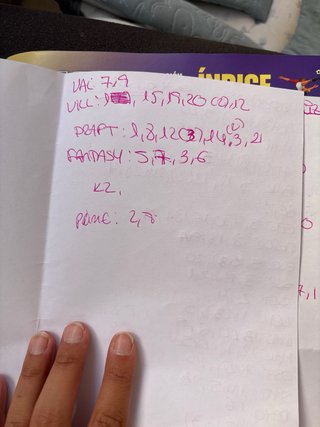 ÍNDICE
VAL: 7, 9
VILL: 15, 19, 20 12
DRAFT: 1, 8, 12 14, 3, 21
(2)
FANTASY: 5, 7, 3, 6
K2,
PRIME: 2, 8
7, 1